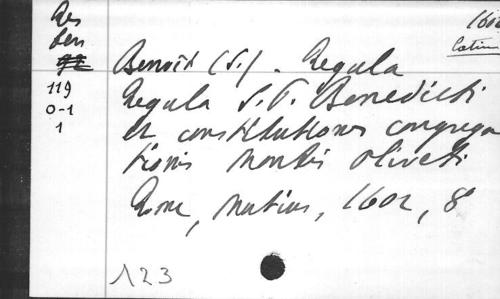 Res
ben
119
0-1
1
1602
latin
Benoit (S.) - Regula
Regula S. P. Benedicti
et constitutiones congrega
tionis montis oliveti
Rome, Mutius, 1602, 8°
123